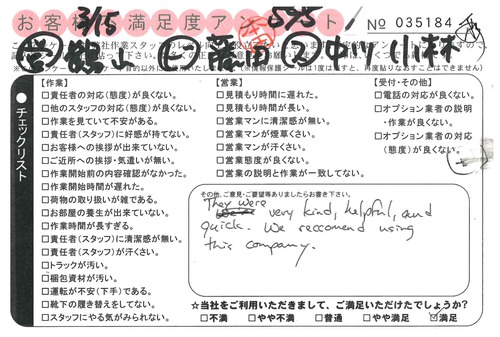 お客様満足度アンケート
3/15
No 035184
チェックリスト
【作業】
□責任者の対応(態度)が良くない。
□他のスタッフの対応(態度)が良くない。
□作業を見ていて不安がある。
□責任者(スタッフ)に好感が持てない。
□お客様への挨拶が出来ていない。
□ご近所への挨拶・気遣いが無い。
□作業開始前の内容確認がなかった。
□作業開始時間が遅れた。
□荷物の取り扱いが雑である。
□お部屋の養生が出来ていない。
□作業時間が長すぎる。
□責任者(スタッフ)に清潔感が無い。
□責任者(スタッフ)が汗くさい。
□トラックが汚い。
□梱包資材が汚い。
□運転が不安(下手)である。
□靴下の履き替えをしてない。
□スタッフにやる気がみられない。
【営業】
□見積もり時間に遅れた。
□見積もり時間が長い。
□営業マンに清潔感が無い。
□営業マンが煙草くさい。
□営業マンが汗くさい。
□営業態度が良くない。
□営業の説明と作業が一致してない。
【受付・その他】
□電話の対応が良くない。
□オプション業者の説明
・作業が良くない。
□オプション業者の対応
(態度)が良くない。
その他、ご意見・ご要望等ありましたらお書き下さい。
They were very kind, helpful, and
quick. We reccomend using
this company.
☆当社をご利用いただきまして、ご満足いただけたでしょうか?
□不満 □やや不満 □普通 □やや満足 ☑満足